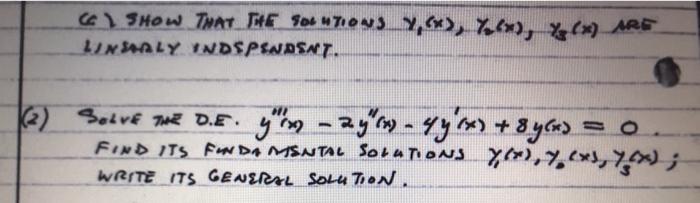 (c) SHOW THAT THE SOLUTIONS Y₁(x), Y₂(x), Y₃(x) ARE
LINEARLY INDEPENDENT.
(2) SOLVE THE D.E. y'''(x) - 2y''(x) - 4y'(x) + 8y(x) = 0.
FIND ITS FUNDAMENTAL SOLUTIONS Y₁(x), Y₂(x), Y₃(x);
WRITE ITS GENERAL SOLUTION.